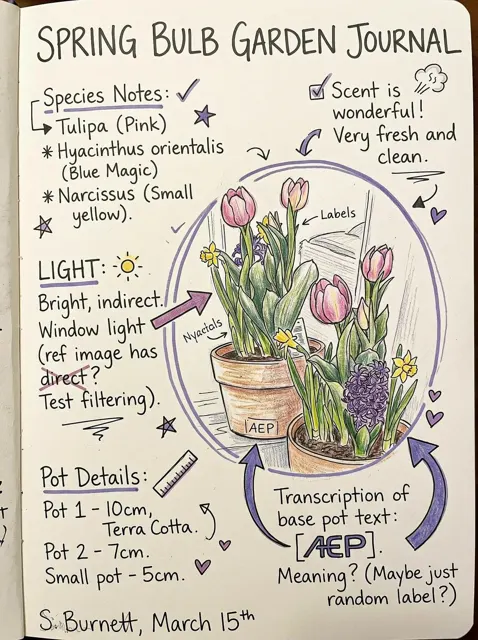 SPRING BULB GARDEN JOURNAL
Species Notes:
Tulipa (Pink)
* Hyacinthus orientalis
(Blue Magic)
* Narcissus (Small
yellow).
Scent is
wonderful!
Very fresh and
clean.
LIGHT:
Bright, indirect.
Window light
(ref image has
direct?
Test filtering).
Labels
Nyactols
AEP
Pot Details:
Pot 1 - 10cm,
Terra Cotta.
Pot 2 - 7cm.
Small pot - 5cm.
Transcription of
base pot text:
[AEP].
Meaning? (Maybe just
random label?)
S. Burnett, March 15th